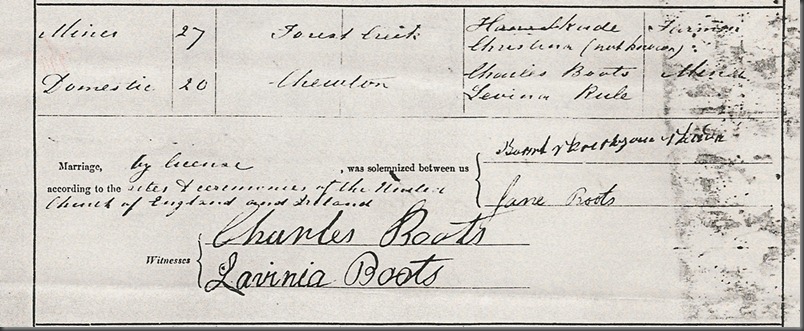 Miner 27 Forest Creek
Christina (not known)
Domestic 20 Chewton Charles Boots Miner
Levinia Rule
Marriage, by license , was solemnized between us
according to the rites & ceremonies of the United
Church of England and Ireland
Jane Boots
Witnesses
Charles Boots
Lavinia Boots